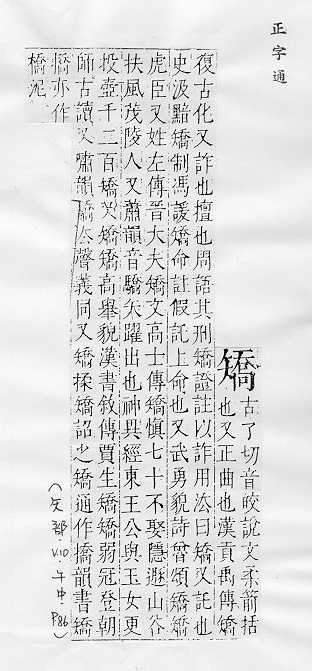 正字通
矯
古了切音皎說文柔箭括
也又正曲也漢貢禹傳矯
復古化又詐也擅也周語其刑矯證註以詐用法曰矯又託也
史汲黯矯制馮諼矯命註假託上命也又武勇貌詩魯頌矯矯
虎臣又姓左傳晉大夫矯文高士傳矯慎七十不娶隱遯山谷
扶風茂陵人又蕭韻音驕矢躍出也神異經東王公與玉女更
投壺千二百矯又矯矯高舉貌漢書敘傳賈生矯矯弱冠登朝
師古讀又嘯韻驕去聲義同又矯揉矯詔之矯通作撟韻書矯
撟亦作
橋泥
(矢部.V.10.午中.P86)